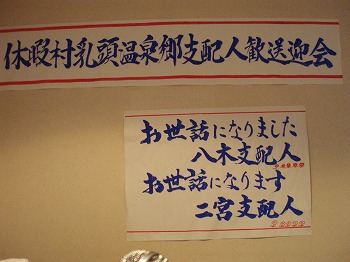 休暇村乳頭温泉郷支配人歓送迎会
お世話になりました
八木支配人
お世話になります
二宮支配人